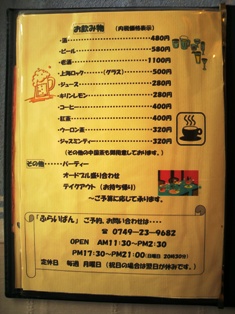 お飲み物 （内税価格表示）
・酒 480円
・ビール 580円
・老酒 1100円
・上海ロック （グラス） 500円
・ジュース 280円
・キリンレモン 280円
・コーヒー 400円
・紅茶 400円
・ウーロン茶 320円
・ジャスミンティ 320円
（その他の中国茶も開発意しております。）
その他 パーティー
オードブル盛り合わせ
テイクアウト（お持ち帰り）
～ご予算に応じて承ります。
「ふらいぱん」 ご予約、お問い合わせは
☎ 0749－23－9682
OPEN AM11:30～PM2:30
PM17:30～PM21:00（日曜日 20時30分）
定休日 毎週 月曜日（祝日の場合は翌日が休みです。）